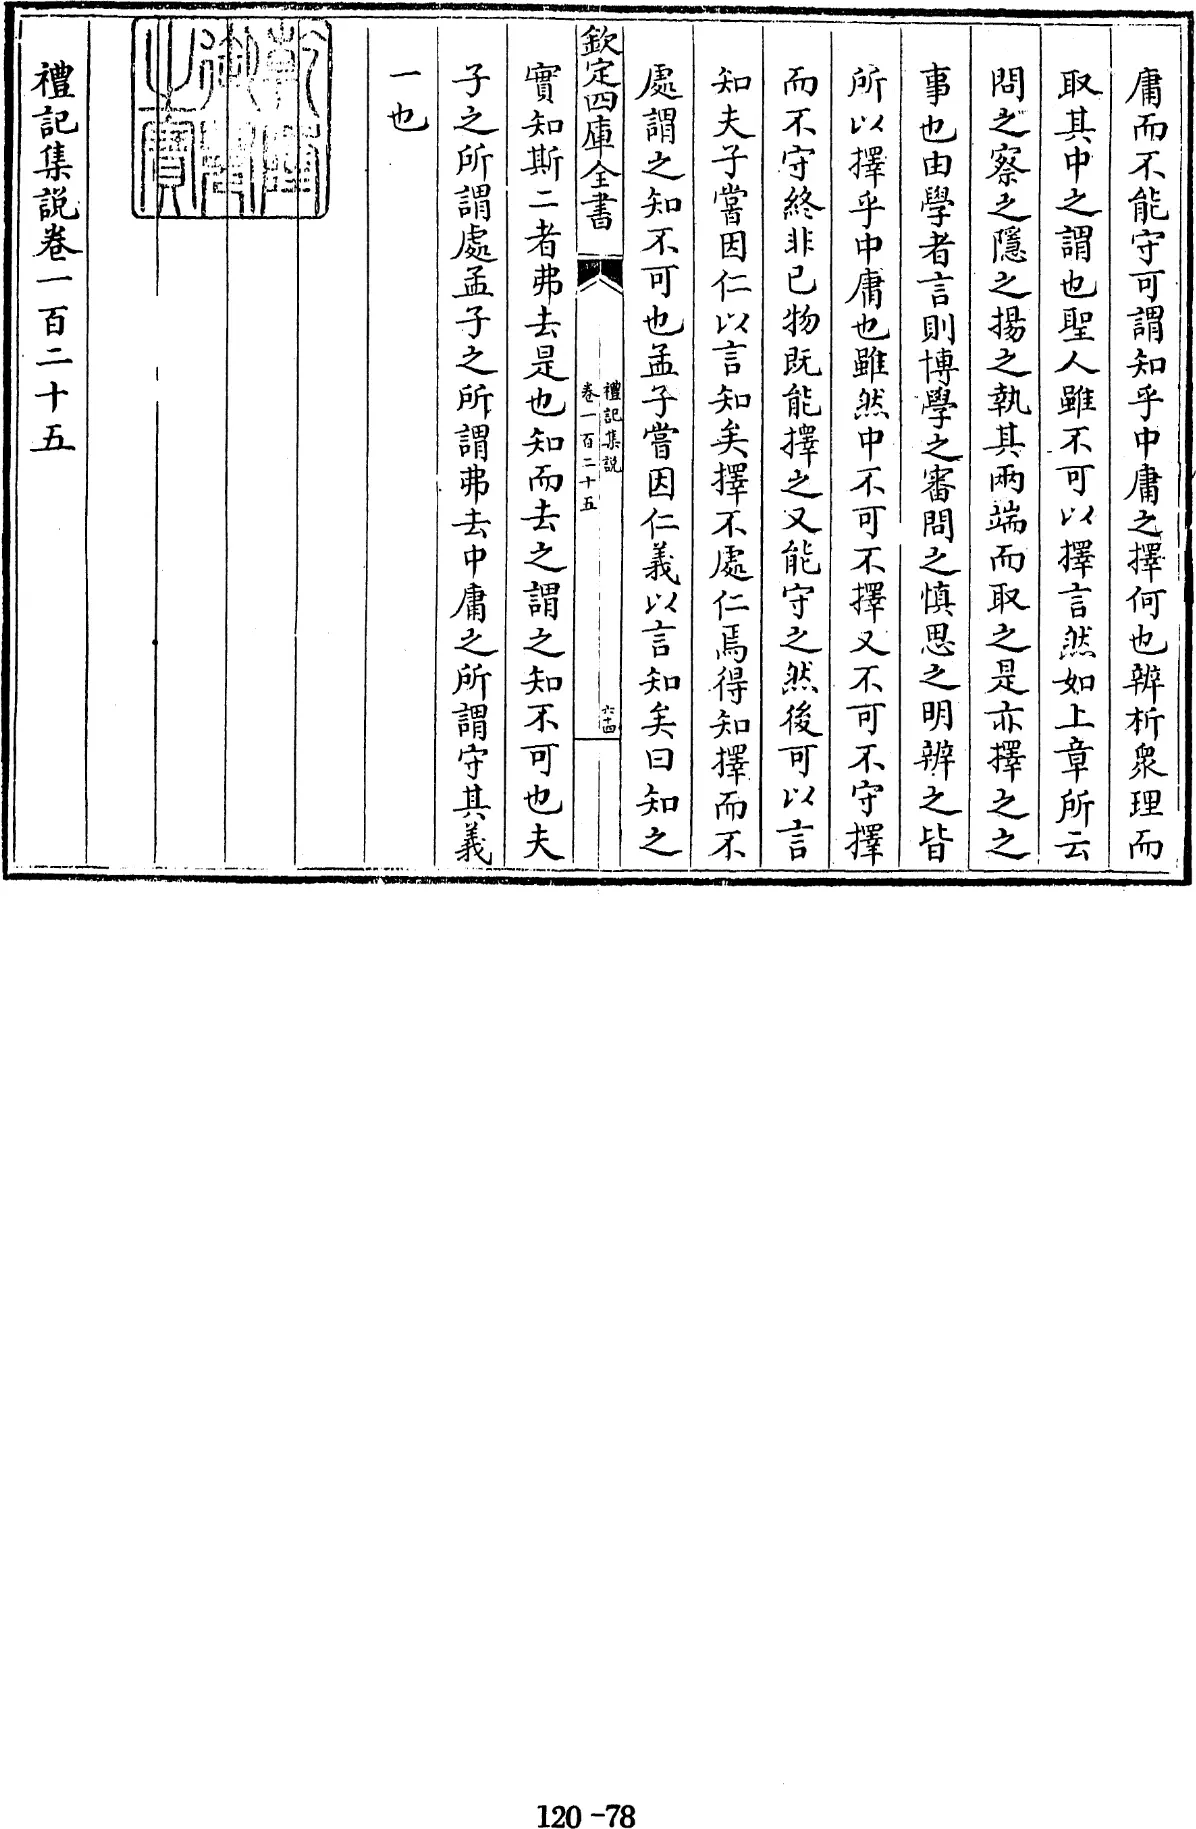 庸而不能守可謂知乎中庸之擇何也辨析衆理而
取其中之謂也聖人雖不可以擇言然如上章所云
問之察之隱之揚之執其兩端而取之是亦擇之之
事也由學者言則博學之審問之慎思之明辨之皆
所以擇乎中庸也雖然中不可不擇又不可不守擇
而不守終非已物既能擇之又能守之然後可以言
知夫子嘗因仁以言知矣擇不處仁焉得知擇而不
處謂之知不可也孟子嘗因仁義以言知矣曰知之
欽定四庫全書
禮記集説
卷一百二十五
六十四
實知斯二者弗去是也知而去之謂之知不可也夫
子之所謂處孟子之所謂弗去中庸之所謂守其義
一也
乾隆御覽之寶
禮記集説卷一百二十五
120-78